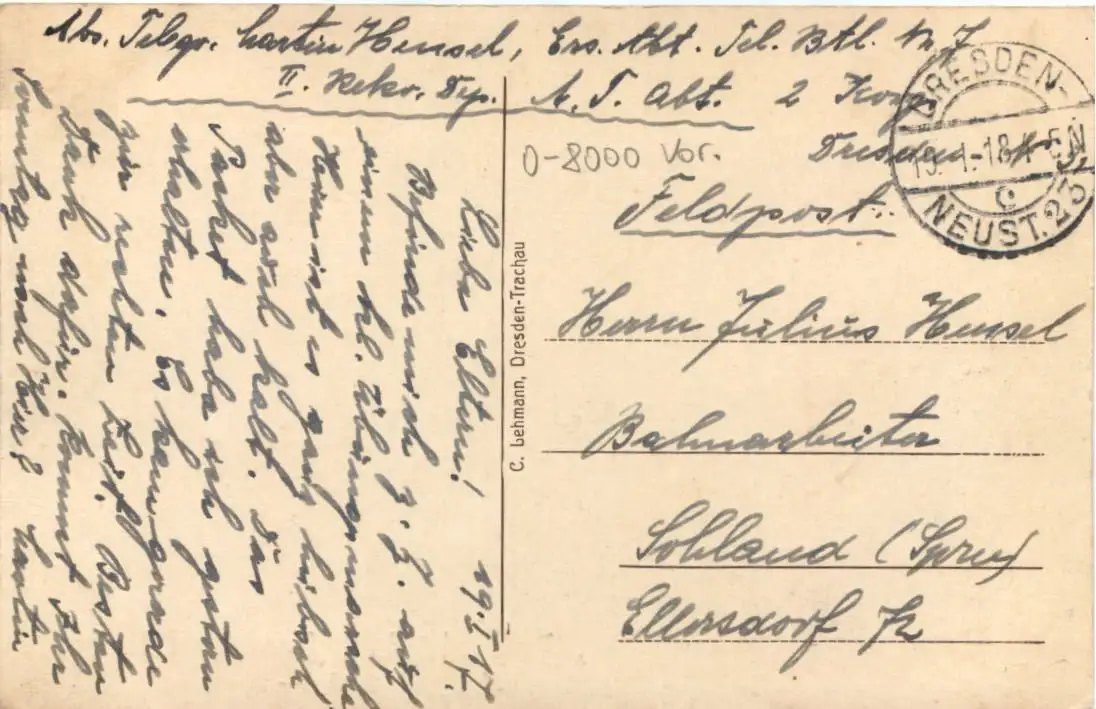 Abs. Telegr. Martin Hensel, Ers. Abt. Tel. Btl. Nr. 7
II. Rekr. Dep. A. T. Abt. 2 Komp.
Dresden N.
DRESDEN-
19. 1. 18. 4-5 N
c
NEUST. 23
0-8000 Vor.
Feldpost.
Herrn Julius Hensel
Bahnarbeiter
Sohland (Spree)
Ellersdorf
C. Lehmann, Dresden-Trachau
19. I. 17.
Liebe Eltern!
Befinde mich z. Z. auf
einem kl. Übungsmarsche
Hier ist es ganz hübsch
aber auch kalt. Das
Packet habe ich gestern
erhalten. Es kam gerade
zur rechten Zeit. Besten
Dank dafür. Kommt Ihr
Sonntag nach hier?
Martin